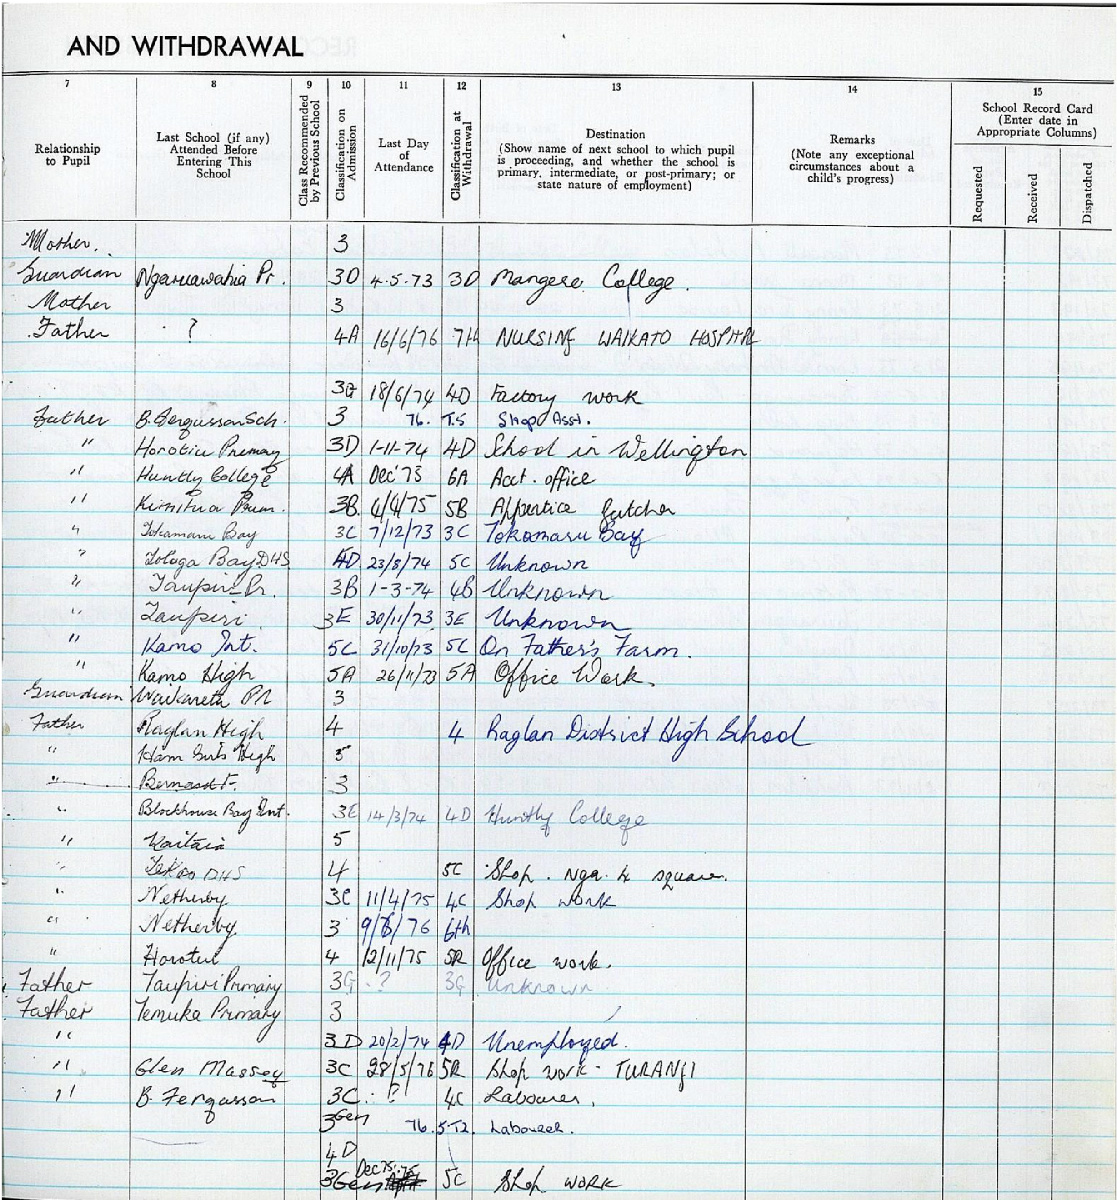 AND WITHDRAWAL
7 8 9 10 11 12 13 14 15
Relationship to Pupil
Last School (if any) Attended Before Entering This School
Class Recommended by Previous School
Classification on Admission
Last Day of Attendance
Classification at Withdrawal
Destination
(Show name of next school to which pupil is proceeding, and whether the school is primary, intermediate, or post-primary; or state nature of employment)
Remarks
(Note any exceptional circumstances about a child's progress)
School Record Card
(Enter date in Appropriate Columns)
Requested
Received
Dispatched
Mother. 3
Guardian Ngaruawahia Pr. 3D 4.5.73 3D Mangere College.
Mother 3
Father ? 4A 16/6/76 7H NURSING WAIKATO HOSPITAL
3G 18/6/74 4D Factory work
Father B. Fergusson Sch. 3 76. T.5 Shop Asst.
" Horotiu Primary 3D 1-11-74 4D School in Wellington
" Huntly College 4A Dec '73 6A Acct. office
" Kimihia Prim. 3B 4/4/75 5B Apprentice butcher
" Tokamaru Bay 3C 7/12/73 3C Tokomaru Bay
" Tologa Bay DHS 4D 23/8/74 5C Unknown
" Taupiri Pr. 3B 1-3-74 4B Unknown
" Taupiri. 3E 30/11/73 3E Unknown
" Kamo Int. 5C 31/10/73 5C On Father's Farm.
" Kamo High 5A 26/11/73 5A Office Work.
Guardian Waikareta PR 3
Father Raglan High 4 4 Raglan District High School
" Ham Girls High 5
" Bernard F. 3
" Blockhouse Bay Int. 3E 14/3/74 4D Huntly College
" Kaitaia 5
" Te Kao DHS 4 5C Shop. Nga. 4 square.
" Netherby 3C 11/4/75 4C Shop work
" Netherby 3 9/8/76 6th
" Horotui 4 12/11/75 5R Office work.
Father Taupiri Primary 3G ? 3G Unknown
Father Temuka Primary 3
" 3D 20/2/74 4D Unemployed.
" Glen Massey 3C 28/5/76 5R Shop work - TURANGI
" B. Fergusson 3C. ? 4C Labourer.
3Gen 76. 5T2. Labourer.
4D
3Gen Dec 75. 5C Shop WORK